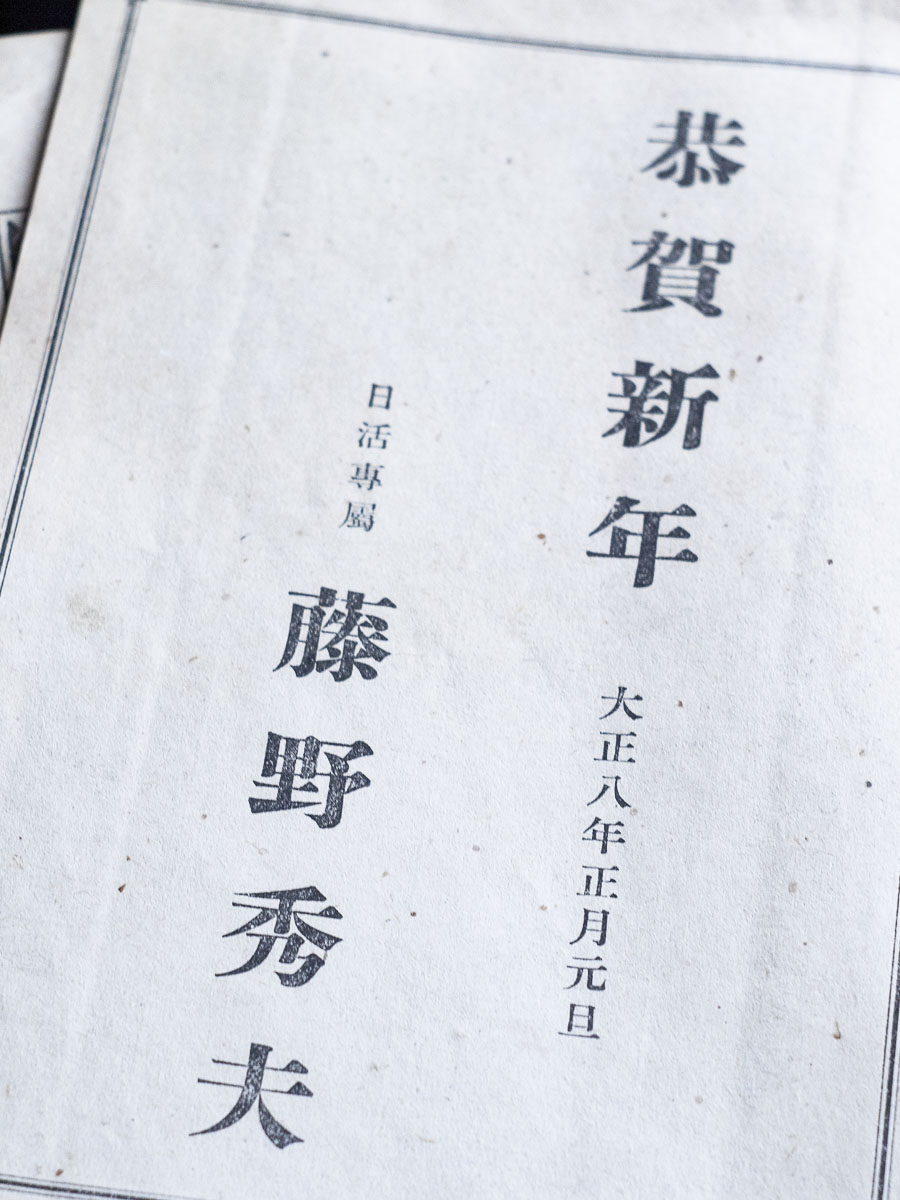 恭賀新年
大正八年正月元旦
日活專屬
藤野秀夫